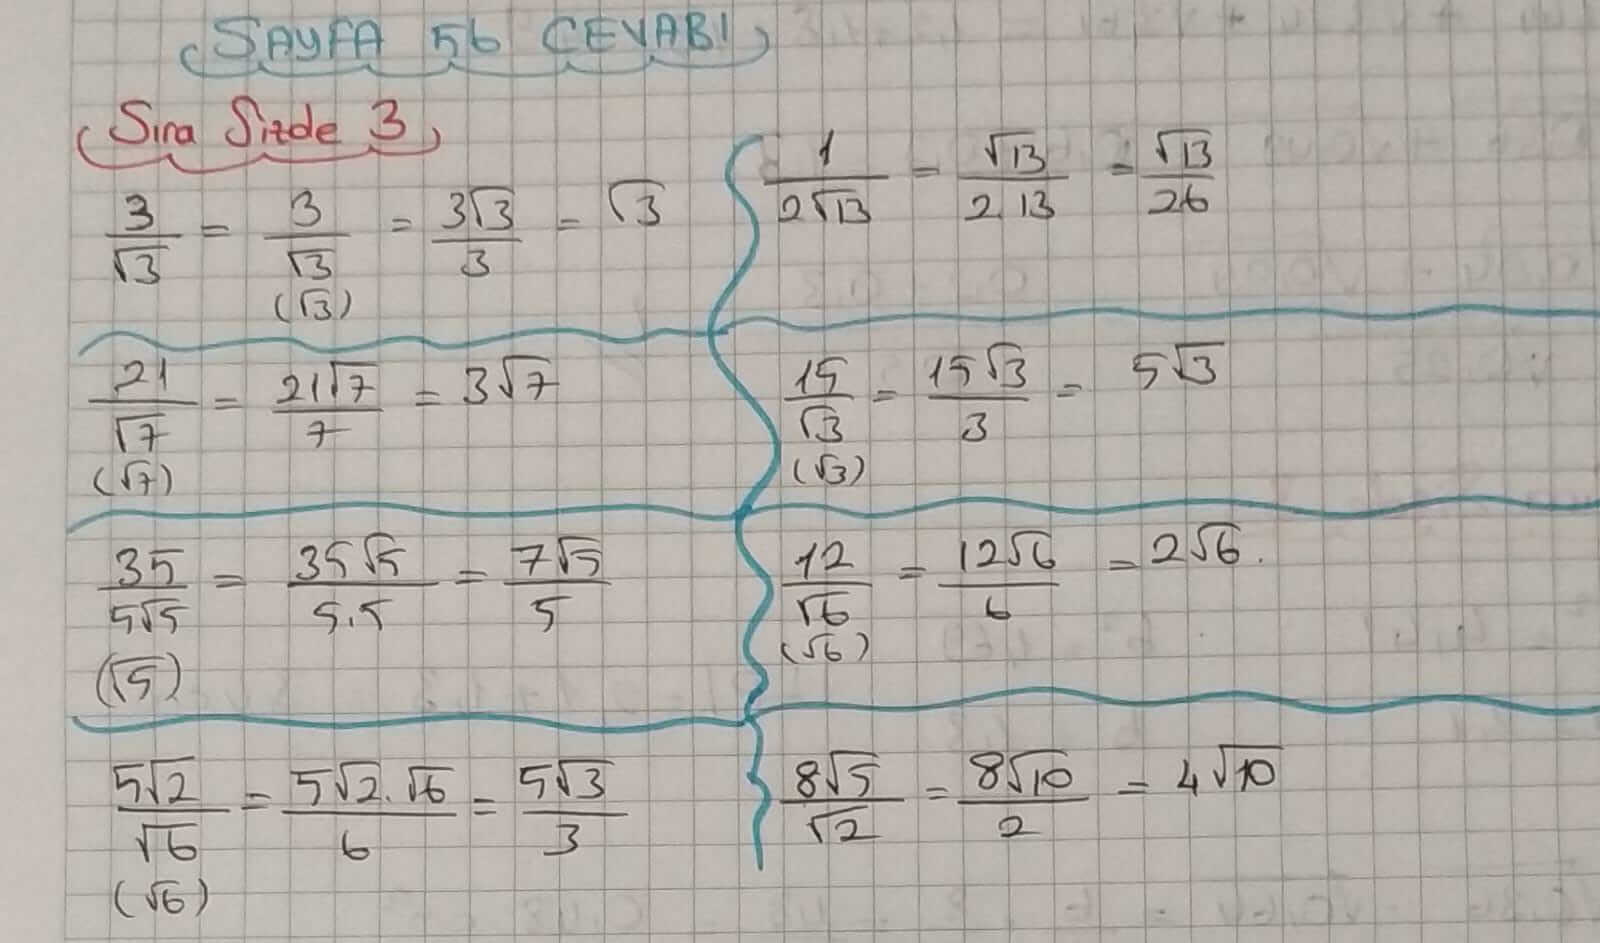 SAYFA 56 CEVABI
Sıra Sizde 3
3/√3 = 3/√3 = 3√3/3 = √3
(√3)
1/2√13 = √13/2.13 = √13/26
21/√7 = 21√7/7 = 3√7
(√7)
15/√3 = 15√3/3 = 5√3
(√3)
35/5√5 = 35√5/5.5 = 7√5/5
(√5)
12/√6 = 12√6/6 = 2√6.
(√6)
5√2/√6 = 5√2.√6/6 = 5√3/3
(√6)
8√5/√2 = 8√10/2 = 4√10